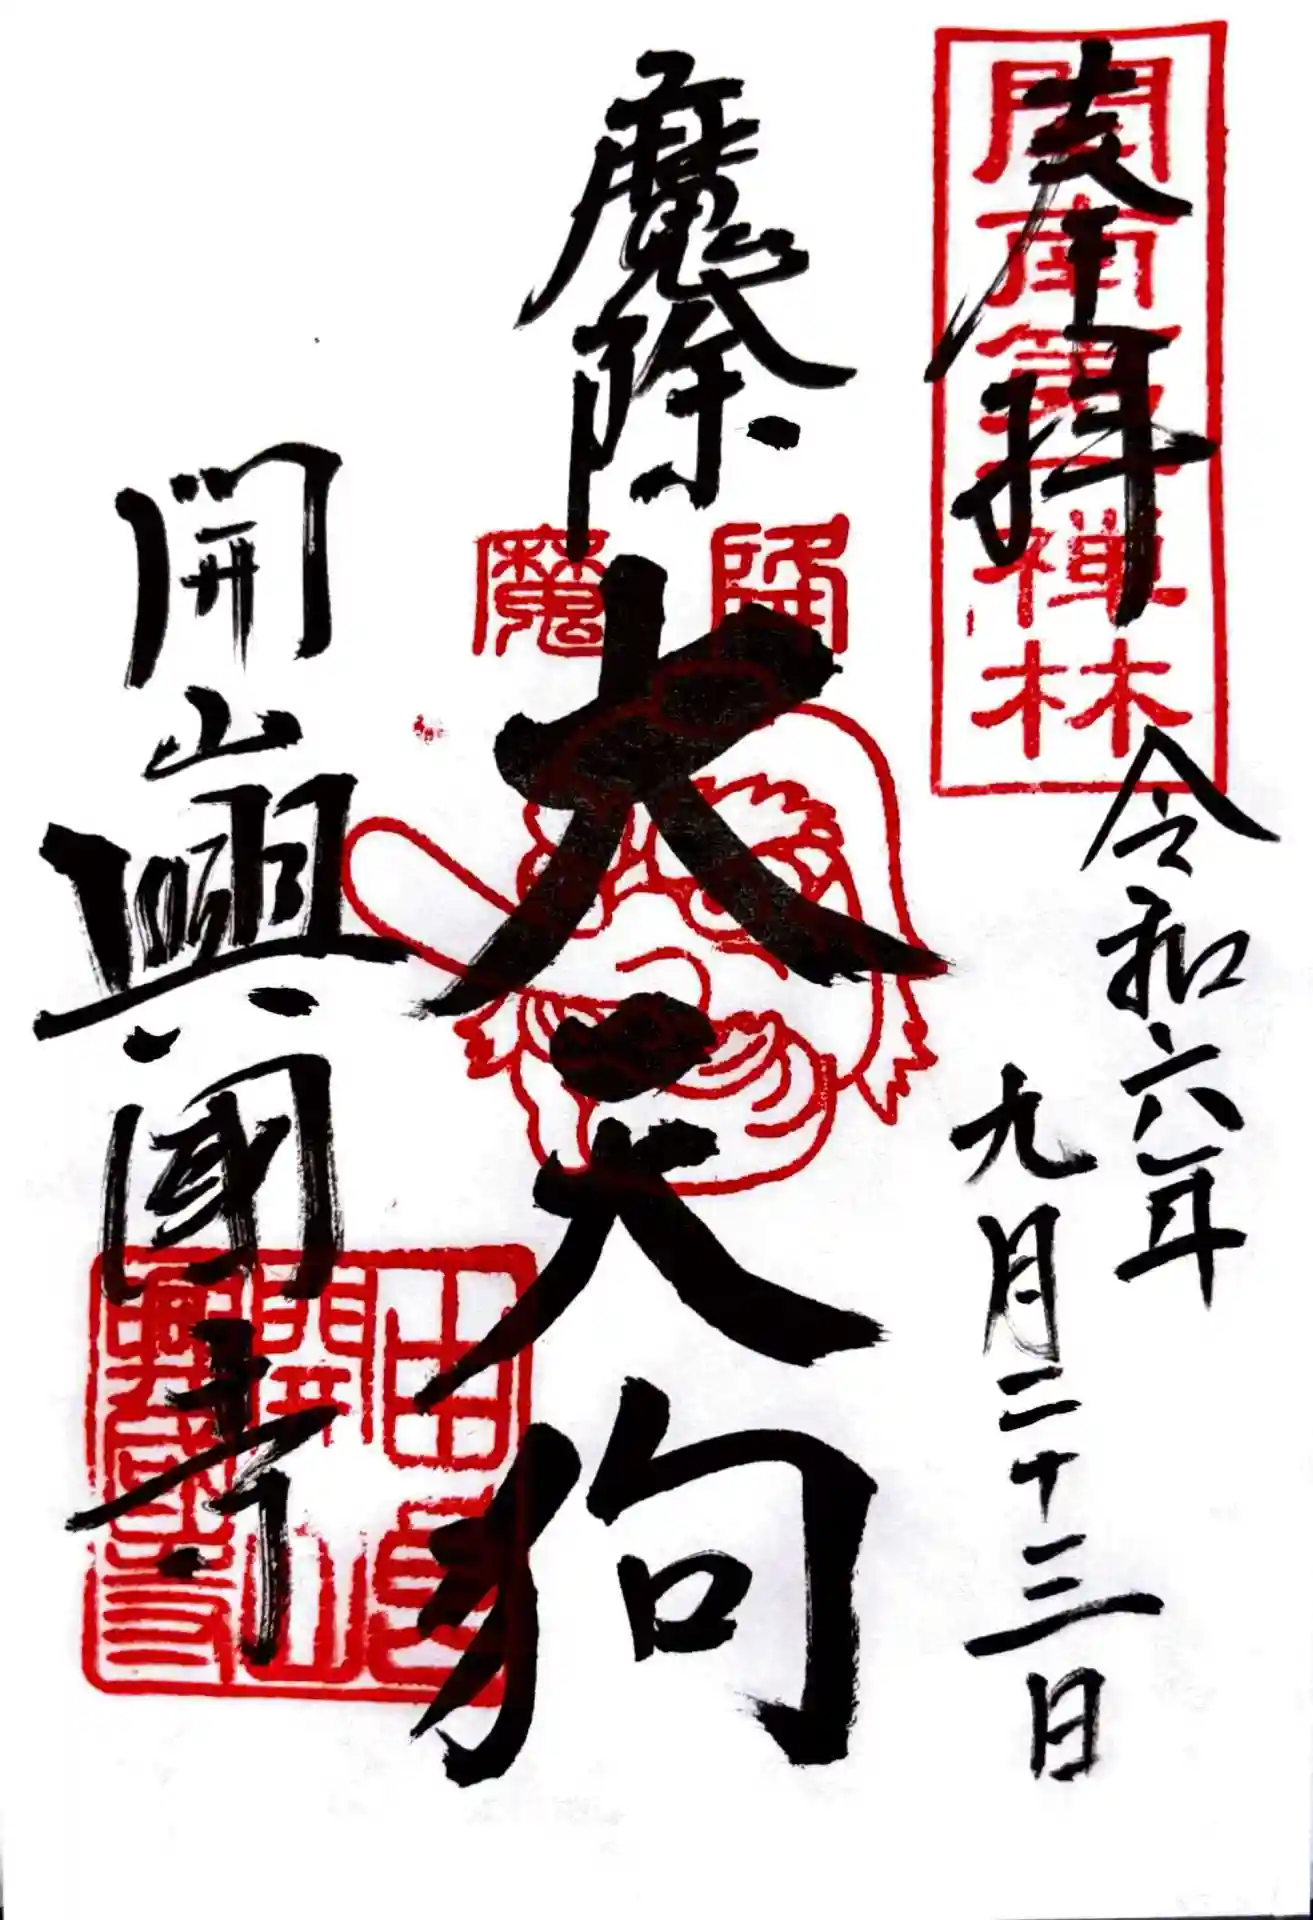 奉拝
関南第一禅林
令和六年
九月二十三日
魔除
降魔
大天狗
開山興國寺
由良
開山
興國寺